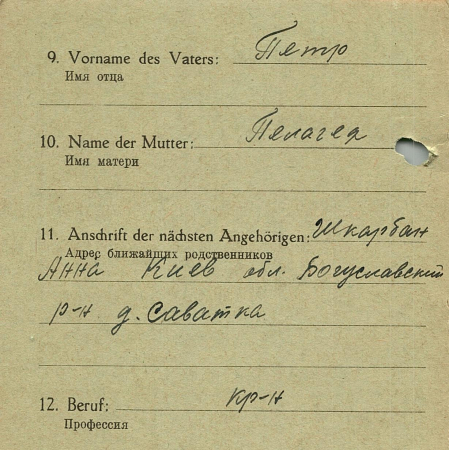 9. Vorname des Vaters: Петр
Имя отца
10. Name der Mutter: Пелагея
Имя матери
11. Anschrift der nächsten Angehörigen: Шкарбан
Адрес ближайших родственников
Анна Киев обл. Богуславский
р-н д. Саватка
12. Beruf: кр-н
Профессия